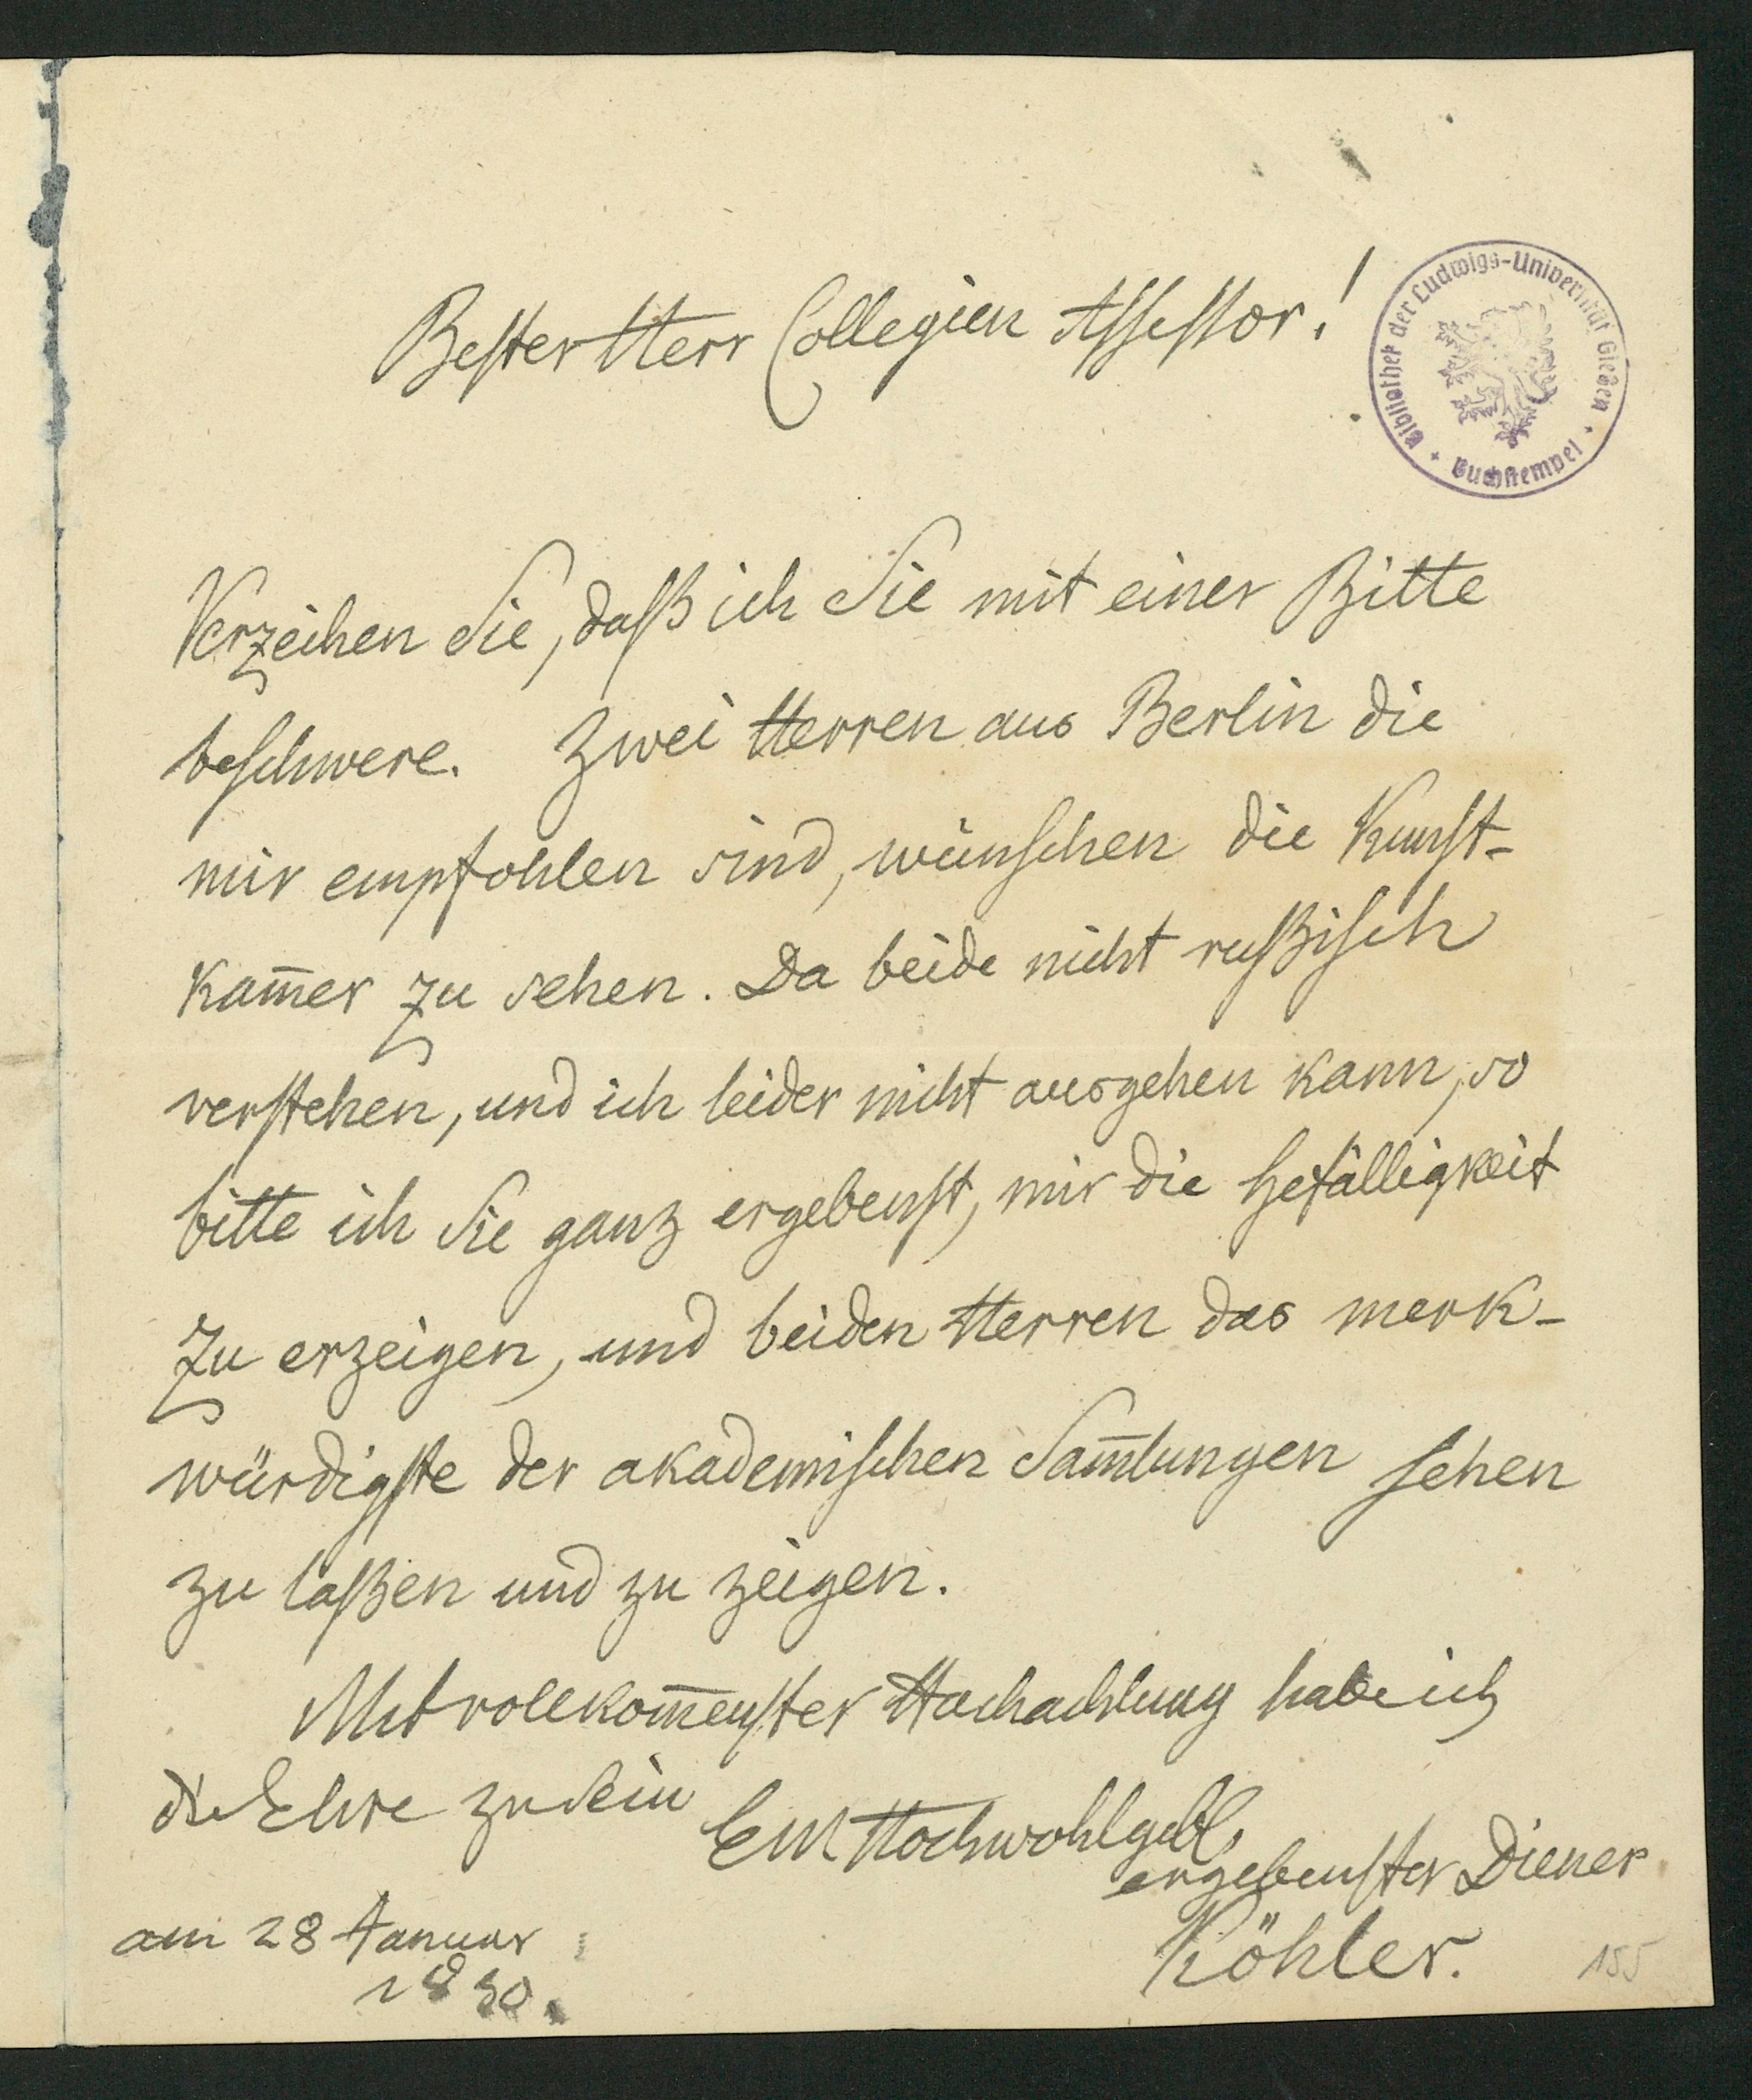 Bester Herr Collegien Assessor!
Bibliothek der Ludwigs-Universität Gießen
Buchstempel
Verzeihen Sie, daß ich Sie mit einer Bitte
beschwere. Zwei Herren aus Berlin die
mir empfohlen sind, wünschen die Kunst-
kam̅er zu sehen. Da beide nicht rußisch
verstehen, und ich leider nicht ausgehen kann, so
bitte ich Sie ganz ergebenst, mir die Gefälligkeit
zu erzeigen, und beiden Herren das merk-
würdigste der akademischen Sam̅lungen sehen
zu laßen und zu zeigen.
Mit vollkom̅enster Hochachtung habe ich
die Ehre zu sein
Ew Hochwohlgebl.
ergebenster Diener
Köhler.
am 28 Januar
1830.
155